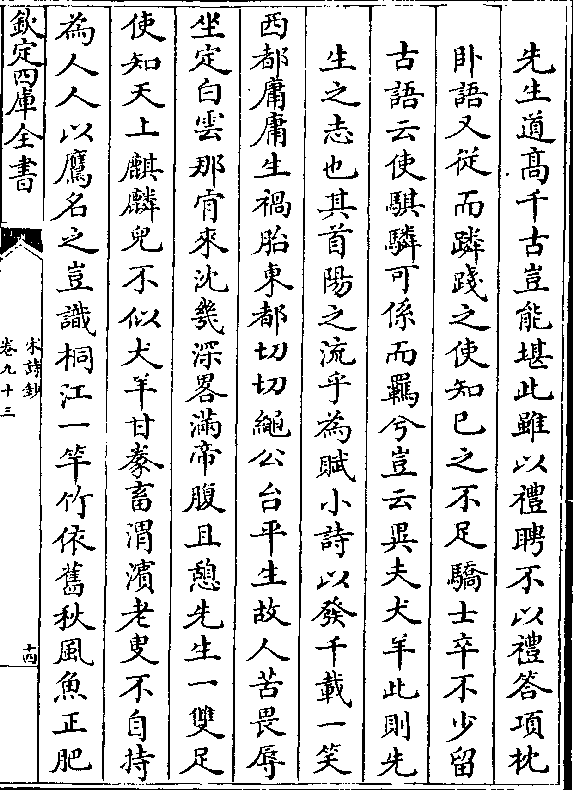 先生道髙千古豈能堪此雖以禮聘不以禮答項枕
卧語又從而蹸踐之使知已之不足驕士卒不少留
古語云使騏驎可係而羈兮豈云異夫犬羊此則先
生之志也其首陽之流乎為賦小詩以發千載一笑
西都庸庸生禍胎東都切切繩公台平生故人苦畏辱
坐定白雲那肎來沈幾深畧滿帝腹且憩先生一雙足
使知天上麒麟兒不似犬羊甘豢畜渭濱老叟不自持
為人人以鷹名之豈識桐江一竿竹依舊秋風魚正肥
欽定四庫全書
宋詩鈔
卷九十三
十四